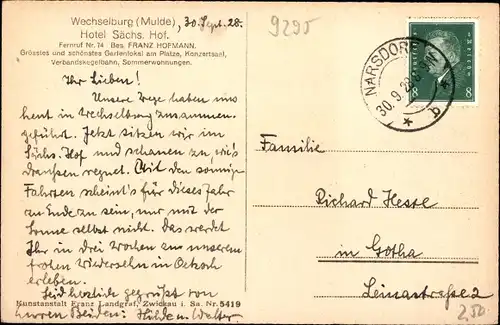 Wechselburg (Mulde), 30. Sept. 28.
9295
Hotel Sächs. Hof.
Fernruf Nr. 74 Bes. FRANZ HOFMANN.
Grösstes und schönstes Gartenlokal am Platze, Konzertsaal,
Verbandskegelbahn, Sommerwohnungen.
Ihr Lieben!
Unsere Wege haben uns
heut in Wechselburg zusammen-
geführt. Jetzt sitzen wir im
Sächs. Hof und schauen zu, wie's
draußen regnet. Mit den sonnigen
Fahrten scheint's für dieses Jahr
zu Ende zu sein, nur mit der
Sonne selbst nicht. Das werdet
Ihr in drei Wochen an unserem
frohen Wiedersehn in
erleben.
Seid herzlich gegrüßt von
Beiden: Hilde u. Walter
Kunstanstalt Franz Landgraf, Zwickau i. Sa. Nr. 5419
NARSDORF
30.9.28
* b *
8 8
Familie
Richard Hesse
in Gotha
Leinastrasse 2
2,50